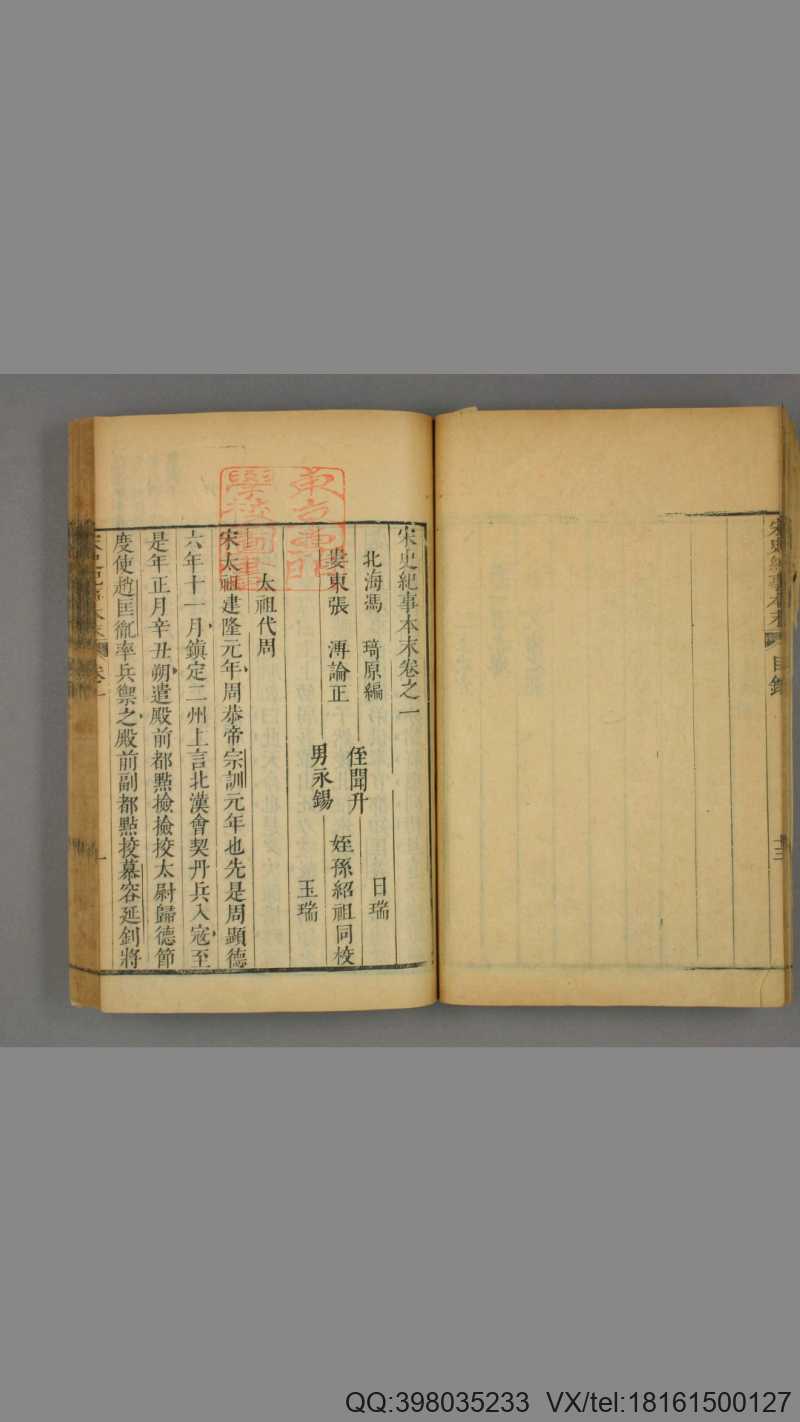 宋史紀事本末
目錄
十三
宋史紀事本末卷之一
北海馮 琦原編
婁東張 溥論正
侄聞升 日瑞
男永錫 玉瑞
姪孫紹祖同校
太祖代周
宋太祖建隆元年周恭帝宗訓元年也先是周顯德
六年十一月鎮定二州上言北漢會契丹兵入寇至
是年正月辛丑朔遣殿前都㸃撿撿校太尉歸德節
度使趙匡胤率兵禦之殿前副都㸃挍慕容延釗將
宋史紀事本末
卷一
一
QQ:398035233 VX/tel:18161500127